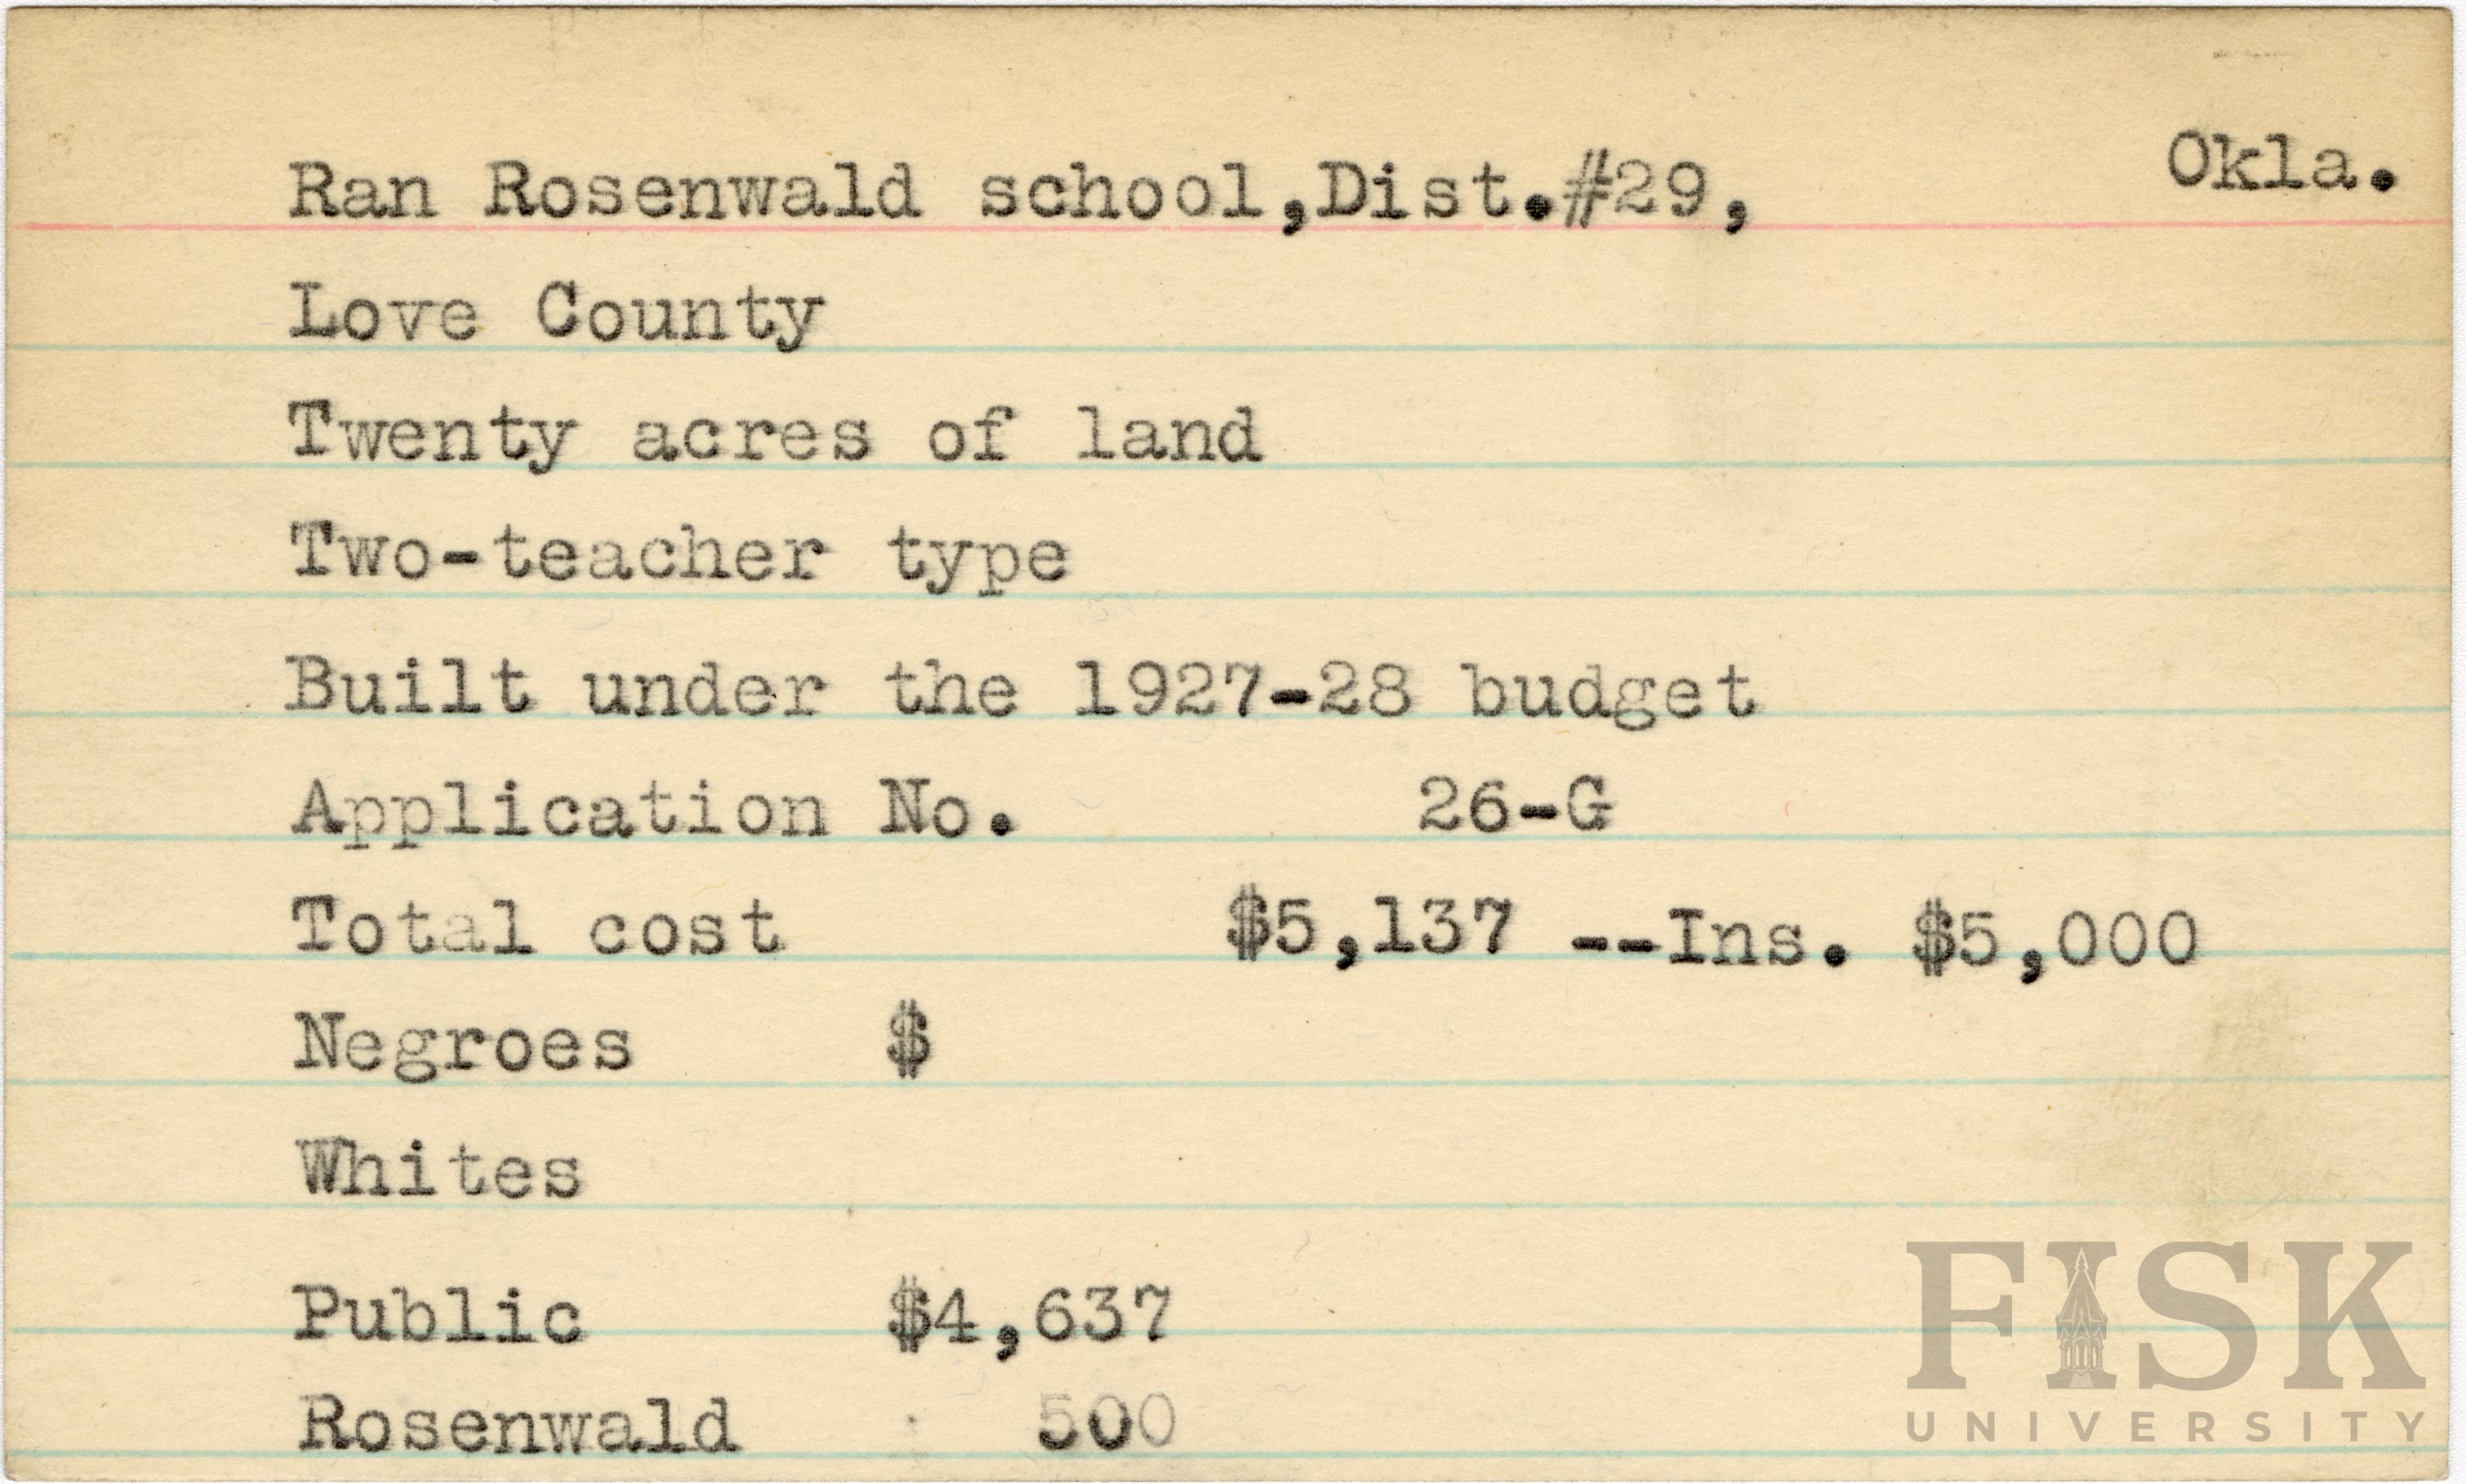 Okla.
Ran Rosenwald school,Dist.#29,
Love County
Twenty acres of land
Two-teacher type
Built under the 1927-28 budget
Application No. 26-G
Total cost $5,137 --Ins. $5,000
Negroes $
Whites
Public $4,637
Rosenwald 500
FISK
UNIVERSITY